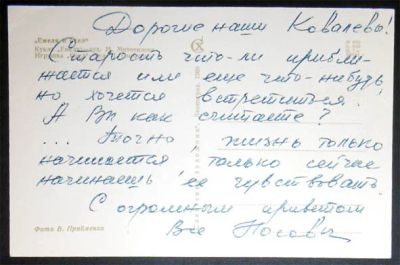 Дорогие наши Ковалевы!
Старость что-ли прибли-
жается или еще что-нибудь,
но хочется встретиться.
А Вы как считаете?
... Точно, жизнь только
начинается, только сейчас
начинаешь ее чувствовать.
С огромным приветом
Все Носовы
Фото В.